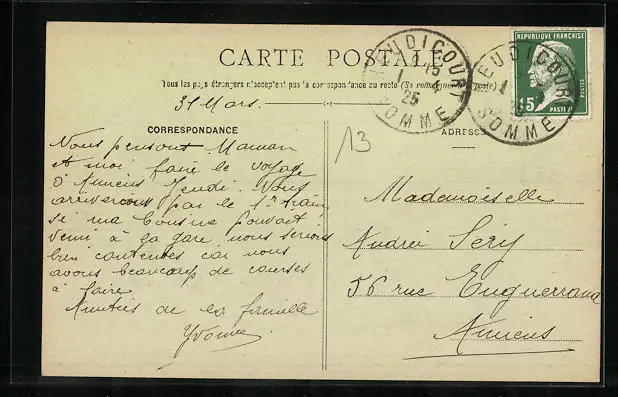 CARTE POSTALE
Tous les pays étrangers n'acceptent pas la correspondance au recto (Se renseigner à la poste)
31 Mars.
CORRESPONDANCE
ADRESSE
13
Nous pensons Maman
et moi faire le voyage
à Amiens Jeudi. Nous
arriverons par le 1er train
si ma Cousine pouvait
venir à la gare nous serions
bien contentes car nous
avons beaucoup de courses
à faire
Amitiés de la famille
Yvonne
Mademoiselle
Andrée Sery
56 rue Enguerrand
Amiens
HEUDICOURT
1 4
25
SOMME
HEUDICOURT
SOMME
REPUBLIQUE FRANÇAISE
POSTES
15
PASTEUR